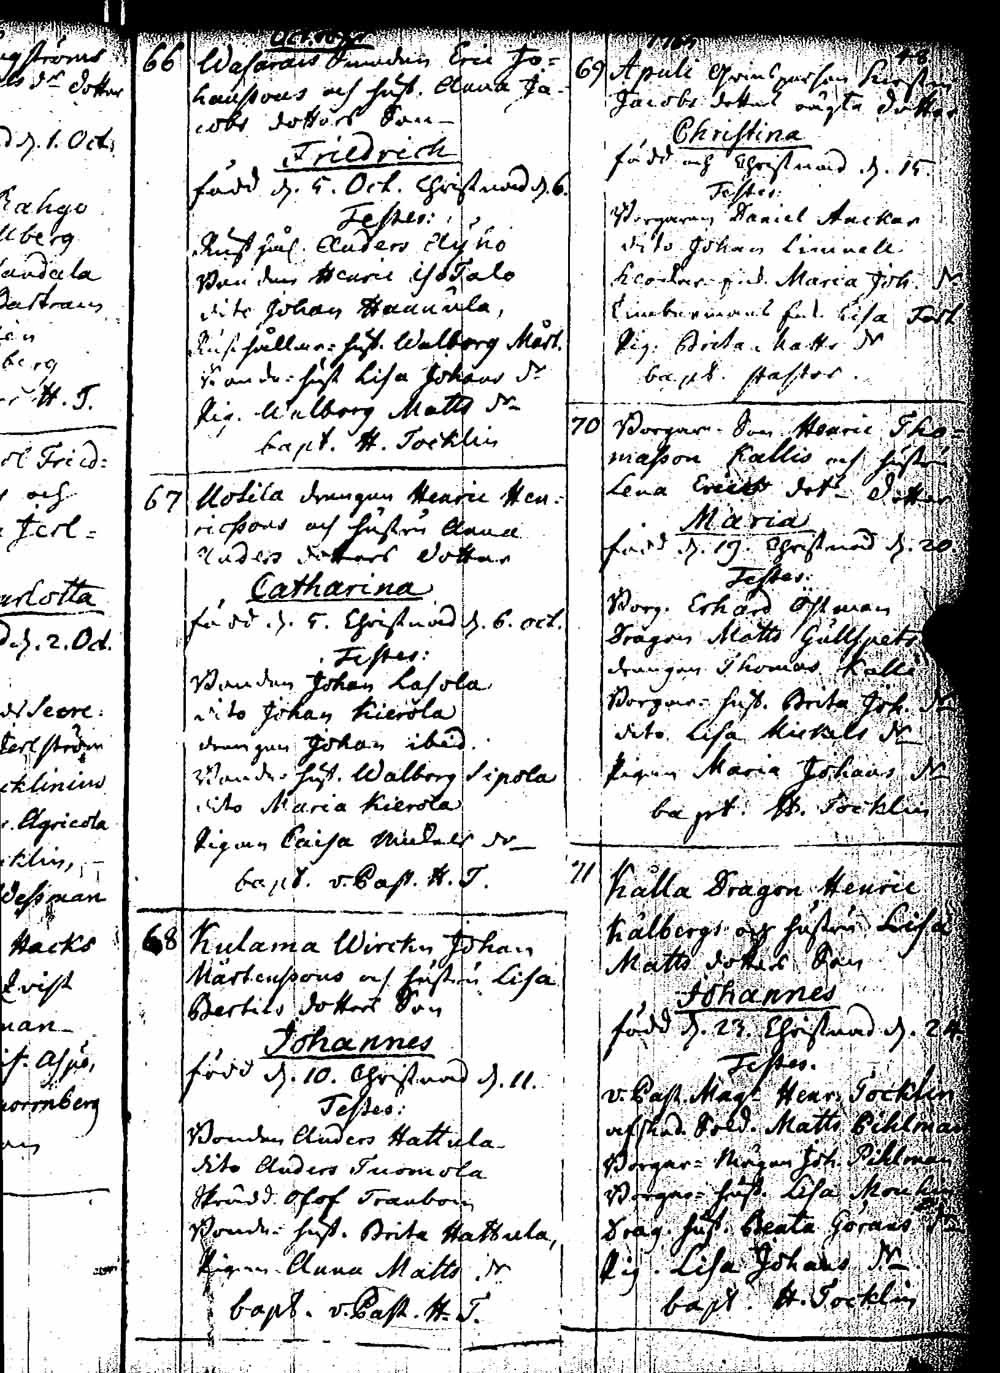 ngströms
dr dotter
d. 1. Oct.
Rahgo
lberg
andala
Bartram
berg
H. T.
Fried=
och
Jerl=
arlotta
d. 2. Oct.
Secre:
erlström
cklinius
Agricola
cklin,
Wessman
Hacks
Qvist
man
Aspö,
normberg
October
66 Wasarais Smeden Eric Jo=
hanssons och hust. Anna Ja=
cobs dotters Son
Friedrich
född d. 5. Oct. Christnad d. 6.
Testes:
Rusthål. Anders Äyhö
Bonden Henric Isotalo
dito Johan Hannula,
Rusthållar= hust. Walborg Mårt.
Bonde= hust Lisa Johans dr
Pig. Walborg Matts dr
bapt. H. Tocklin
67 Uotila drengen Henric Hen=
ricssons och hustru Anna
Anders dotters dotter
Catharina
född d. 5. Christnad d. 6. oct.
Testes:
Bonden Johan Lasola
dito Johan Kierola
drengen Johan ibid.
Bonde= hust. Walborg Sipola
dito Maria Kierola
Pigan Caisa Michels dr
bapt. v. Past. H. T.
68 Kulama Wircku Johan
Mårtenssons och hustru Lisa
Bertils dotters Son
Johannes
född d. 10. Christnad d. 11.
Testes:
Bonden Anders Hattula
dito Anders Tuomola
Skrädd. Olof Tranbom
Bonde= hust. Brita Hattula,
Pigan Anna Matts dr
bapt. v. Past. H. T.
48
69 Apuli Qvinsperson Kirstin
Jacobs dotters oägta dotter
Christina
född och Christnad d. 15.
Testes:
Borgaren Daniel Anckar
dito Johan Limnell
Maria Joh. dr
Timberman Lisa
Pig. Brita Matts dr
bapt. Pastor.
70 Borgar= Son Henric Tho=
masson Kallis och hustru
Lena Erics dot. dotter
Maria
född d. 19. Christnad d. 20.
Testes:
Borg. Erhard Östman
Dragon Matts Gullspets
drengen Thomas Kalli
Borgar= hust. Brita Joh. dr
dito Lisa Mickels dr
Pigan Maria Johans dr
bapt. H. Tocklin
71 Kålla Dragon Henric
Kålbergs och hustru Lisa
Matts dotters Son
Johannes
född d. 23. Christnad d. 24.
Testes.
v. Past. Mag. Henr. Tocklin
afsked. Sold. Matts Pihlman
Borgar= Mågen Joh. Pihlman
Borgar= hust. Lisa
Drag. hust. Beata Görans dr
Pig. Lisa Johans dr
bapt. H. Tocklin